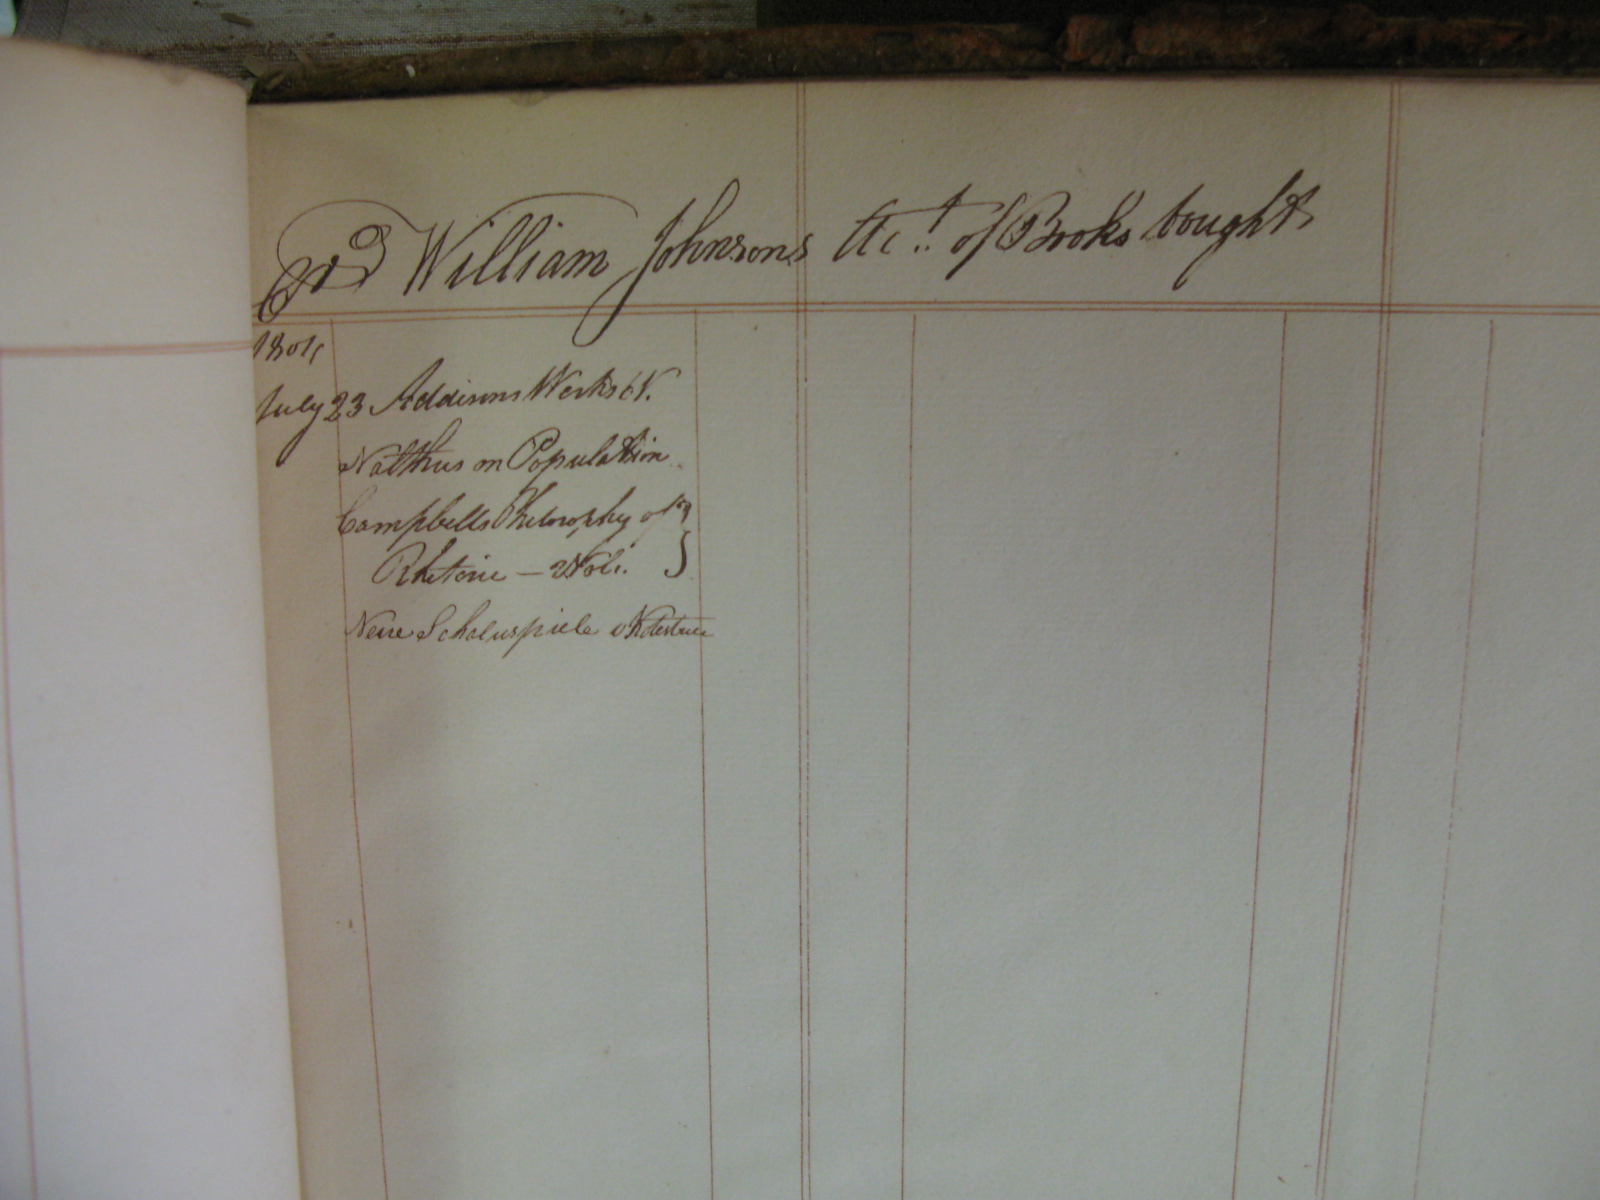 William Johnsons Acct. of Books bought
1804
July 23 Addisons Works 6 V.
Malthus on Population
Campbells Philosophy of
Rhetoric — 2 Vols.
Neue Schauspiele v Kotzebue